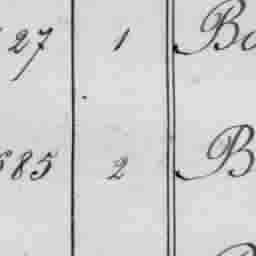 27 1 Bo
685 2 B